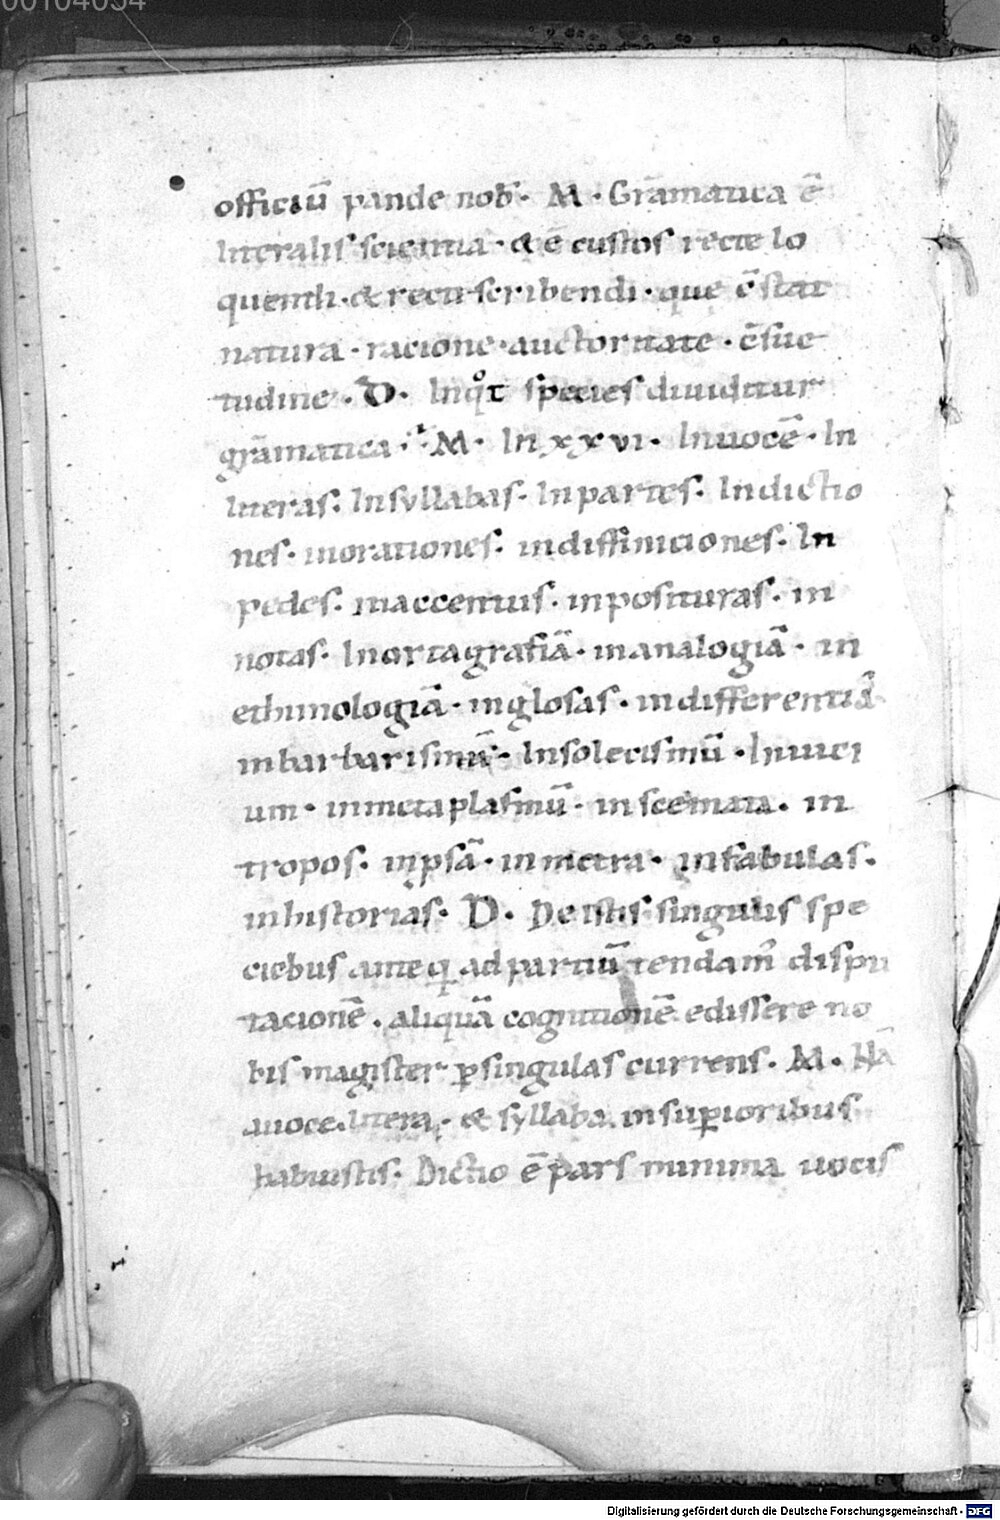 00104034
officiū pande nob̄. M. Grāmatica ē
literalis scientia. & ē custos recte lo
quendi. & recte scribendi. que c̄stat
natura. racione. auctoritate. c̄sue
tudine. D. In qͦt species diuiditur
grāmatica. M. In xxvi. In uocē. In
literas. In syllabas. In partes. In dictio
nes. in orationes. in diffiniciones. In
pedes. in accentus. in posituras. in
notas. In ortagrafiā. in analogiā. in
ethimologiā. in glosas. in differentiā.
in barbarismū. In solecismū. In uici
um. in metaplasmū. in scemata. in
tropos. in psā. in metra. in fabulas.
in historias. D. De istis singulis spe
ciebus ante q̄ ad partiū tendam̄ dispu
tacionē. aliquā cognitionē edissere no
bis magister ꝑ singulas currens. M. Nā
uoce. litera. & syllaba. in suꝑioribus
habuistis. Dictio ē pars minima uocis
Digitalisierung gefördert durch die Deutsche Forschungsgemeinschaft - DFG